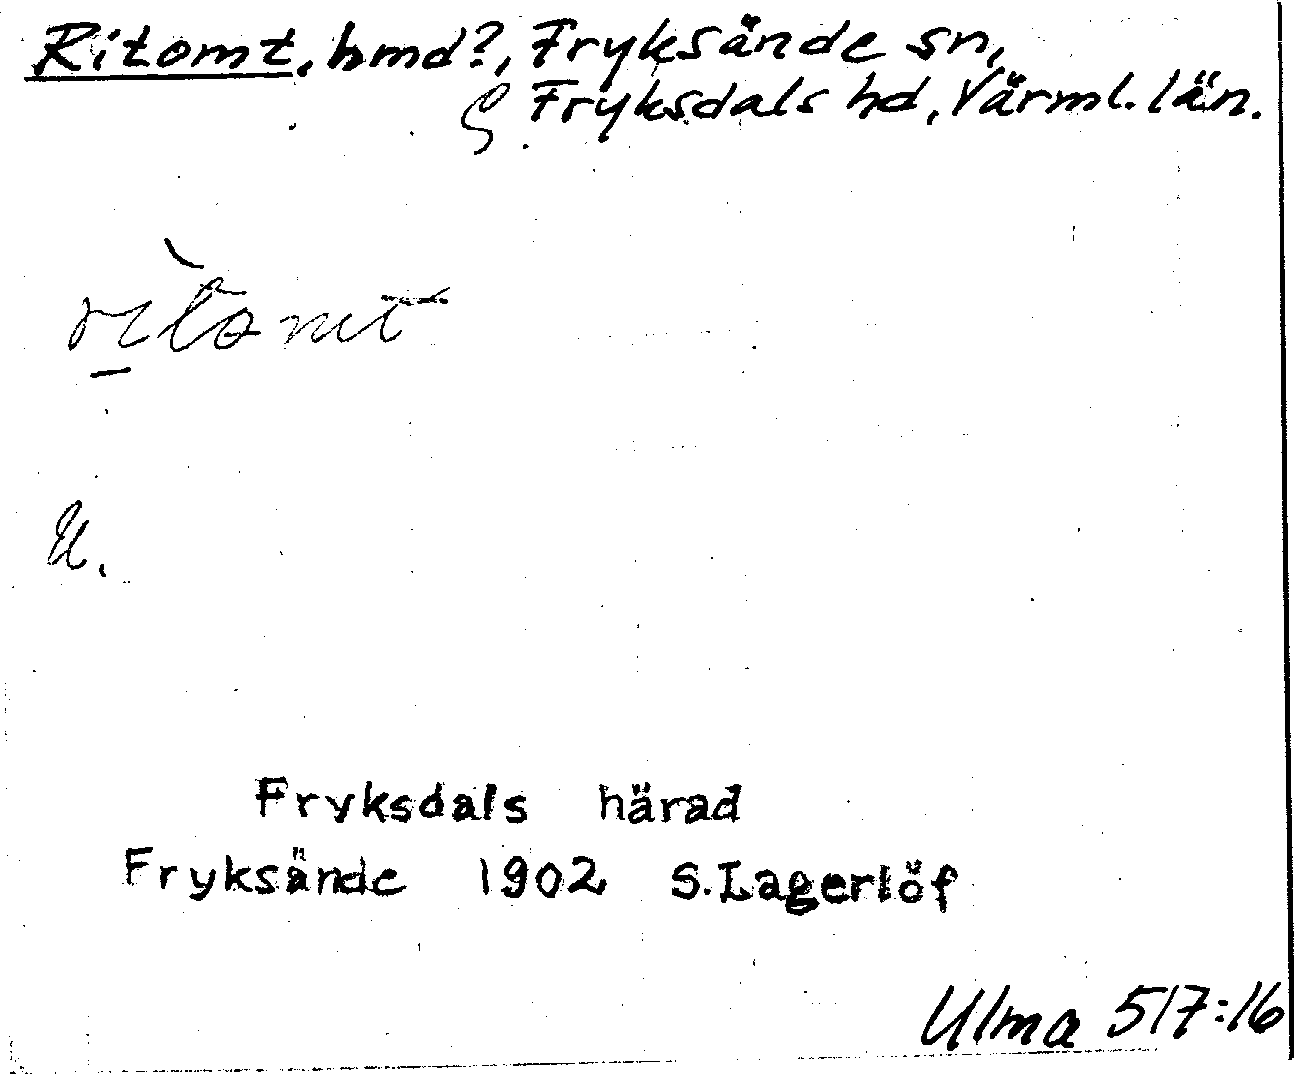 Ritomt, hmd?, Fryksände sn,
Fryksdals hd, Värml. län.
ritomt
U.
Fryksdals härad
Fryksände 1902 S. Lagerlöf
Ulma 517:16